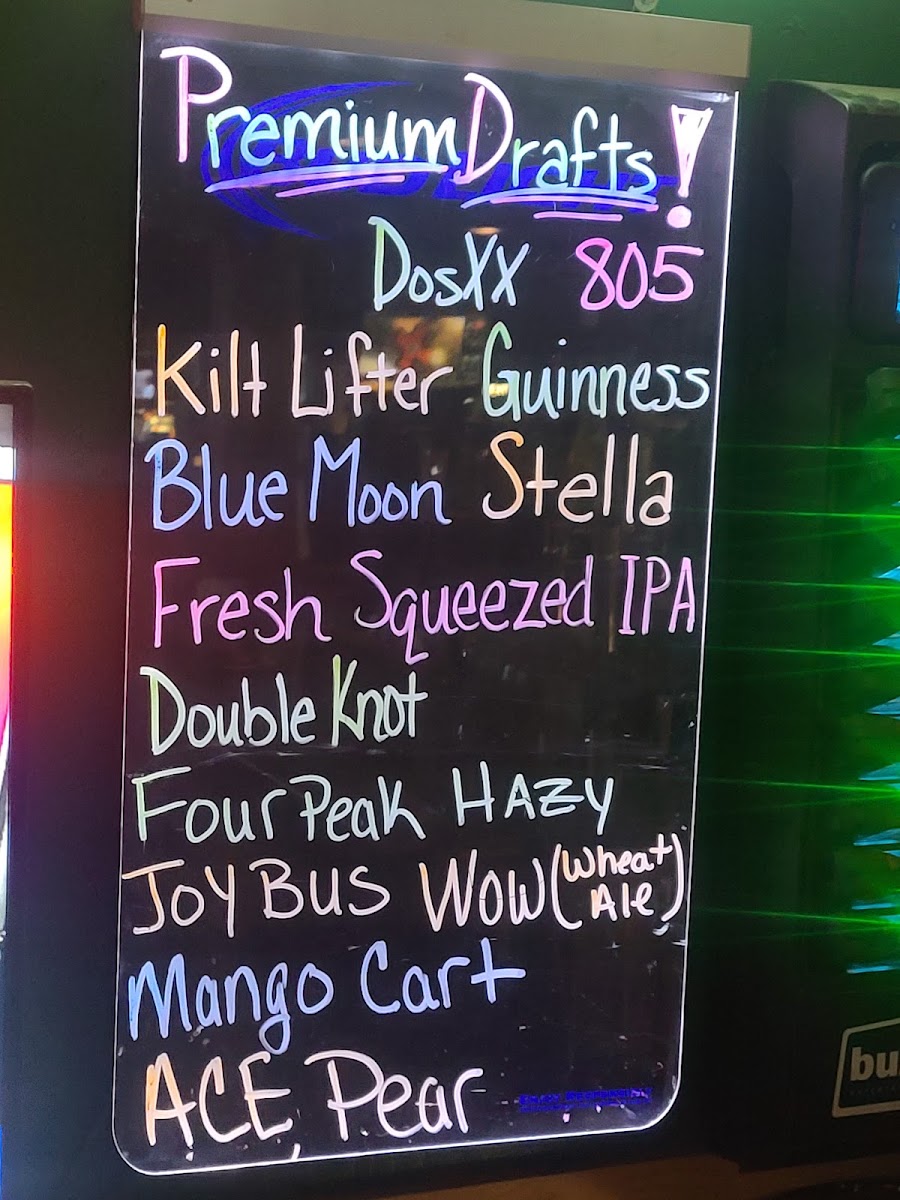 Premium Drafts!
DosXX 805
Kilt Lifter Guinness
Blue Moon Stella
Fresh Squeezed IPA
Double Knot
Four Peak HAZY
JOY BUS WOW (Wheat Ale)
Mango Cart
ACE Pear
bu